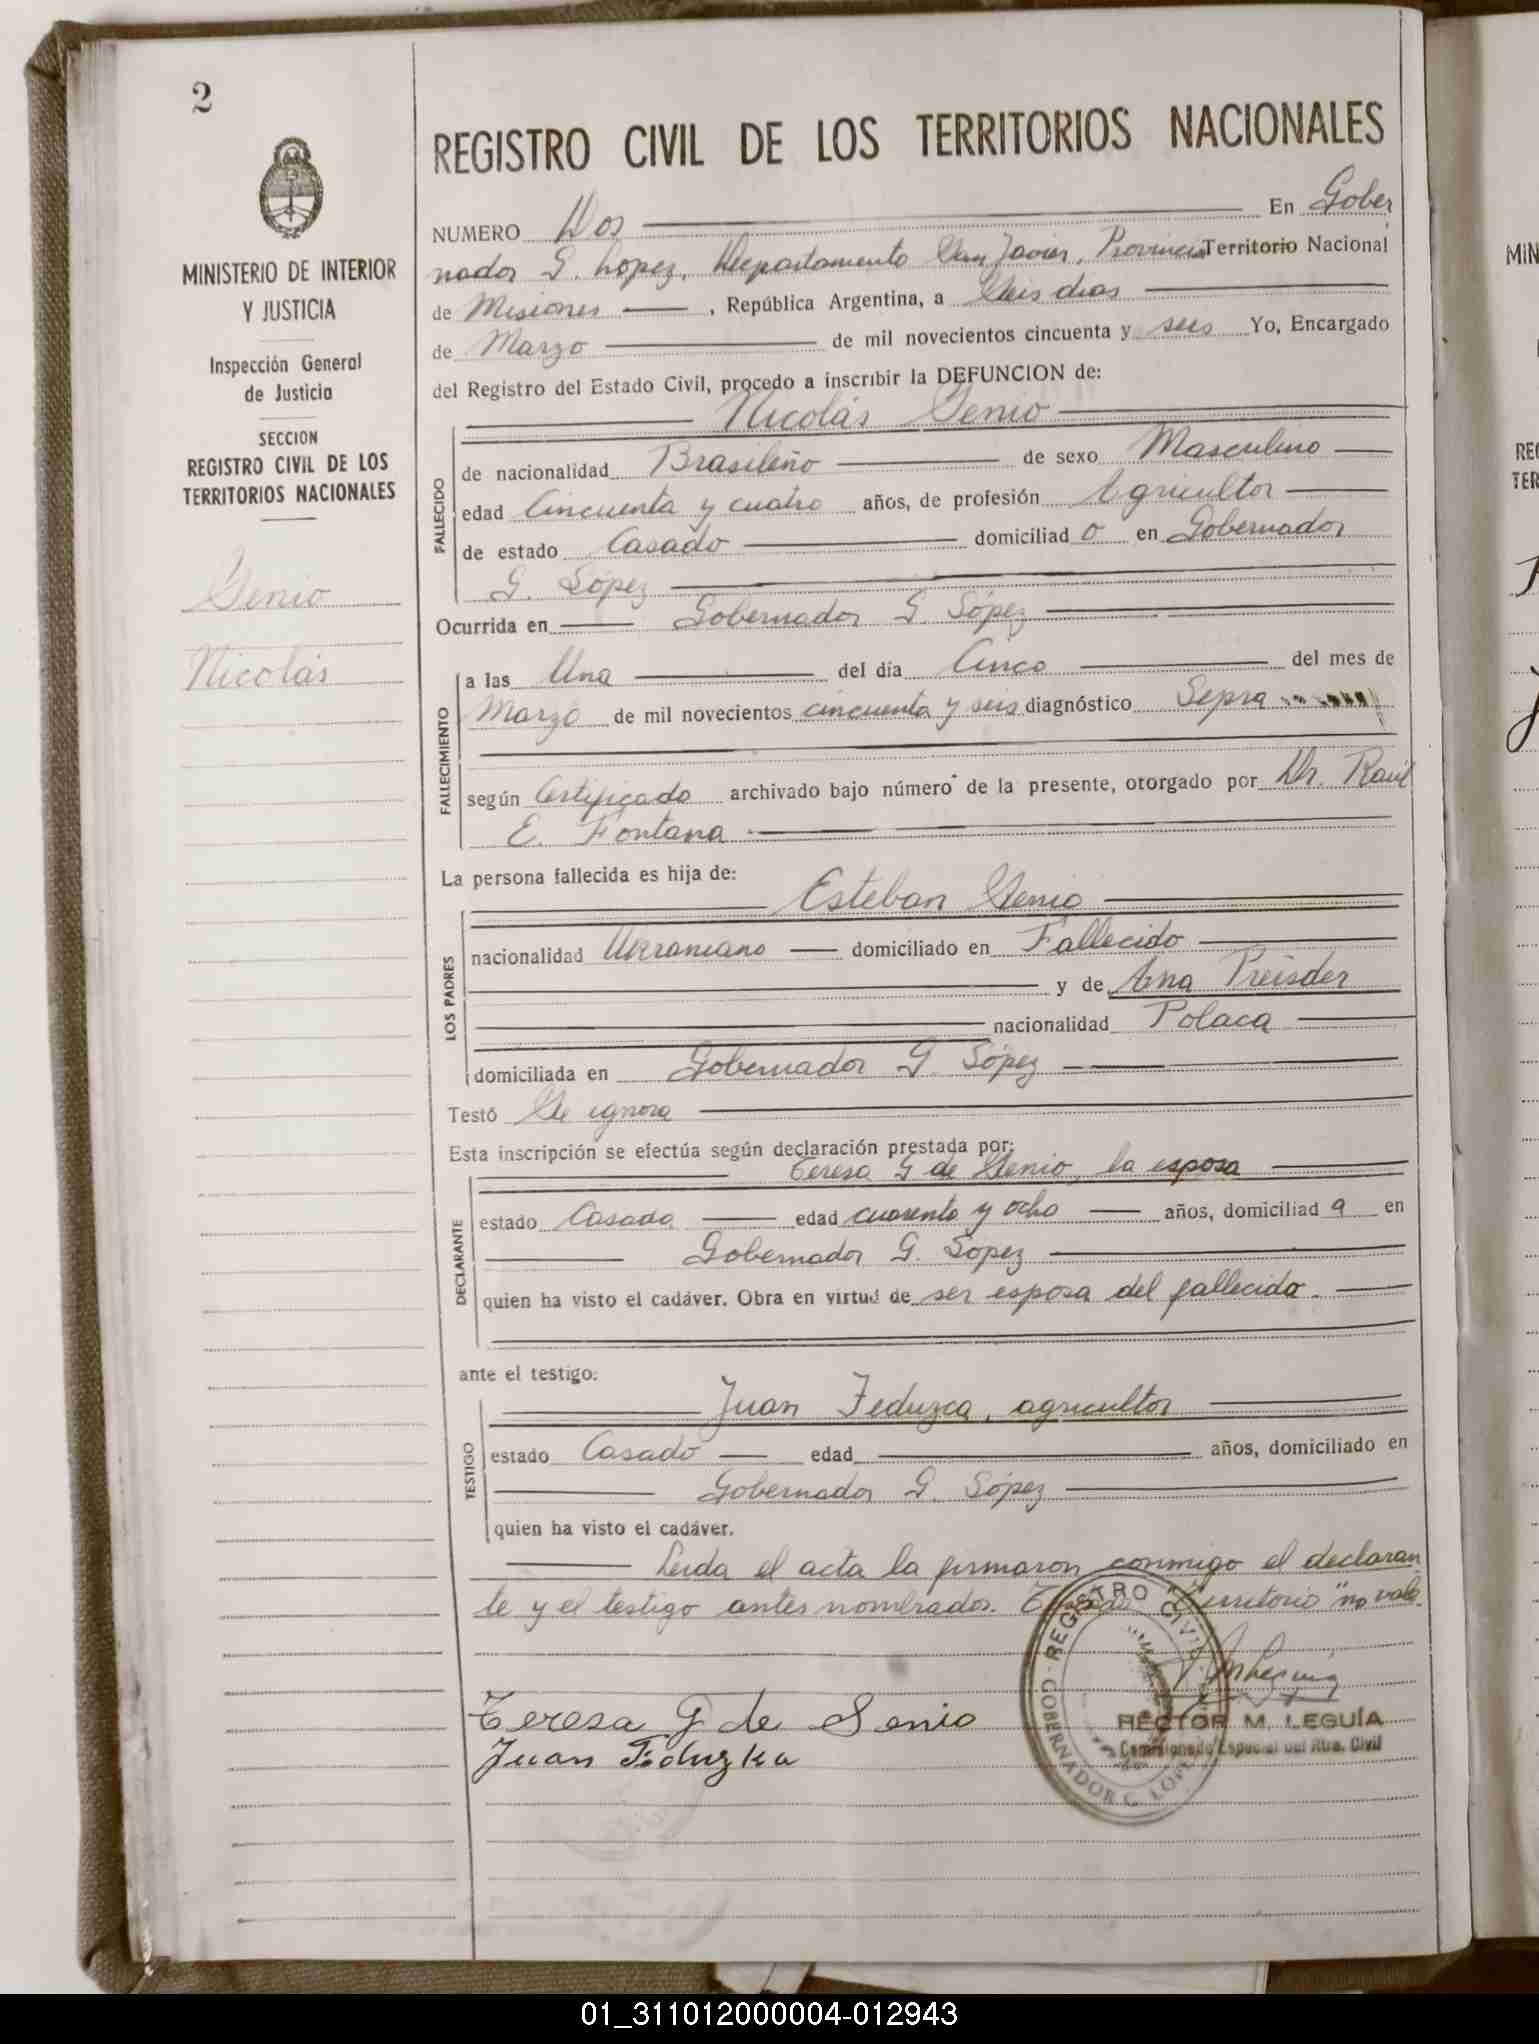 2
MINISTERIO DE INTERIOR
Y JUSTICIA
Inspección General
de Justicia
SECCION
REGISTRO CIVIL DE LOS
TERRITORIOS NACIONALES
Senio
Nicolás
REGISTRO CIVIL DE LOS TERRITORIOS NACIONALES
NUMERO Dos En Gober
nador G. López, Departamento San Javier, Provincia Territorio Nacional
de Misiones, República Argentina, a Seis dias
de Marzo de mil novecientos cincuenta y seis Yo, Encargado
del Registro del Estado Civil, procedo a inscribir la DEFUNCION de:
Nicolás Senio
FALLECIDO
de nacionalidad Brasileño de sexo Masculino
edad Cincuenta y cuatro años, de profesión Agricultor
de estado Casado domiciliad o en Gobernador
G. López
Ocurrida en Gobernador G. López
FALLECIMIENTO
a las Una del día Cinco del mes de
Marzo de mil novecientos cincuenta y seis diagnóstico
según Certificado archivado bajo número de la presente, otorgado por Dr. Raúl
E. Fontana
La persona fallecida es hija de:
Esteban Senio
LOS PADRES
nacionalidad Ukraniano domiciliado en Fallecido
y de Ana Preisder
nacionalidad Polaca
domiciliada en Gobernador G. López
Testó Se ignora
Esta inscripción se efectúa según declaración prestada por:
Teresa G de Senio, la esposa
DECLARANTE
estado Casada edad cuarenta y ocho años, domiciliad a en
Gobernador G. López
quien ha visto el cadáver. Obra en virtud de ser esposa del fallecido.
ante el testigo:
Juan Feduzca, agricultor
TESTIGO
estado Casado edad años, domiciliado en
Gobernador G. López
quien ha visto el cadáver.
Leida el acta la firmaron conmigo el declaran
te y el testigo antes nombrados. Territorio "no vale.
REGISTRO CIVIL
GOBERNADOR G. LOPEZ
HECTOR M. LEGUÍA
Comisionado Especial del Rtro. Civil
Teresa G de Senio
Juan Feduzka
01_311012000004-012943